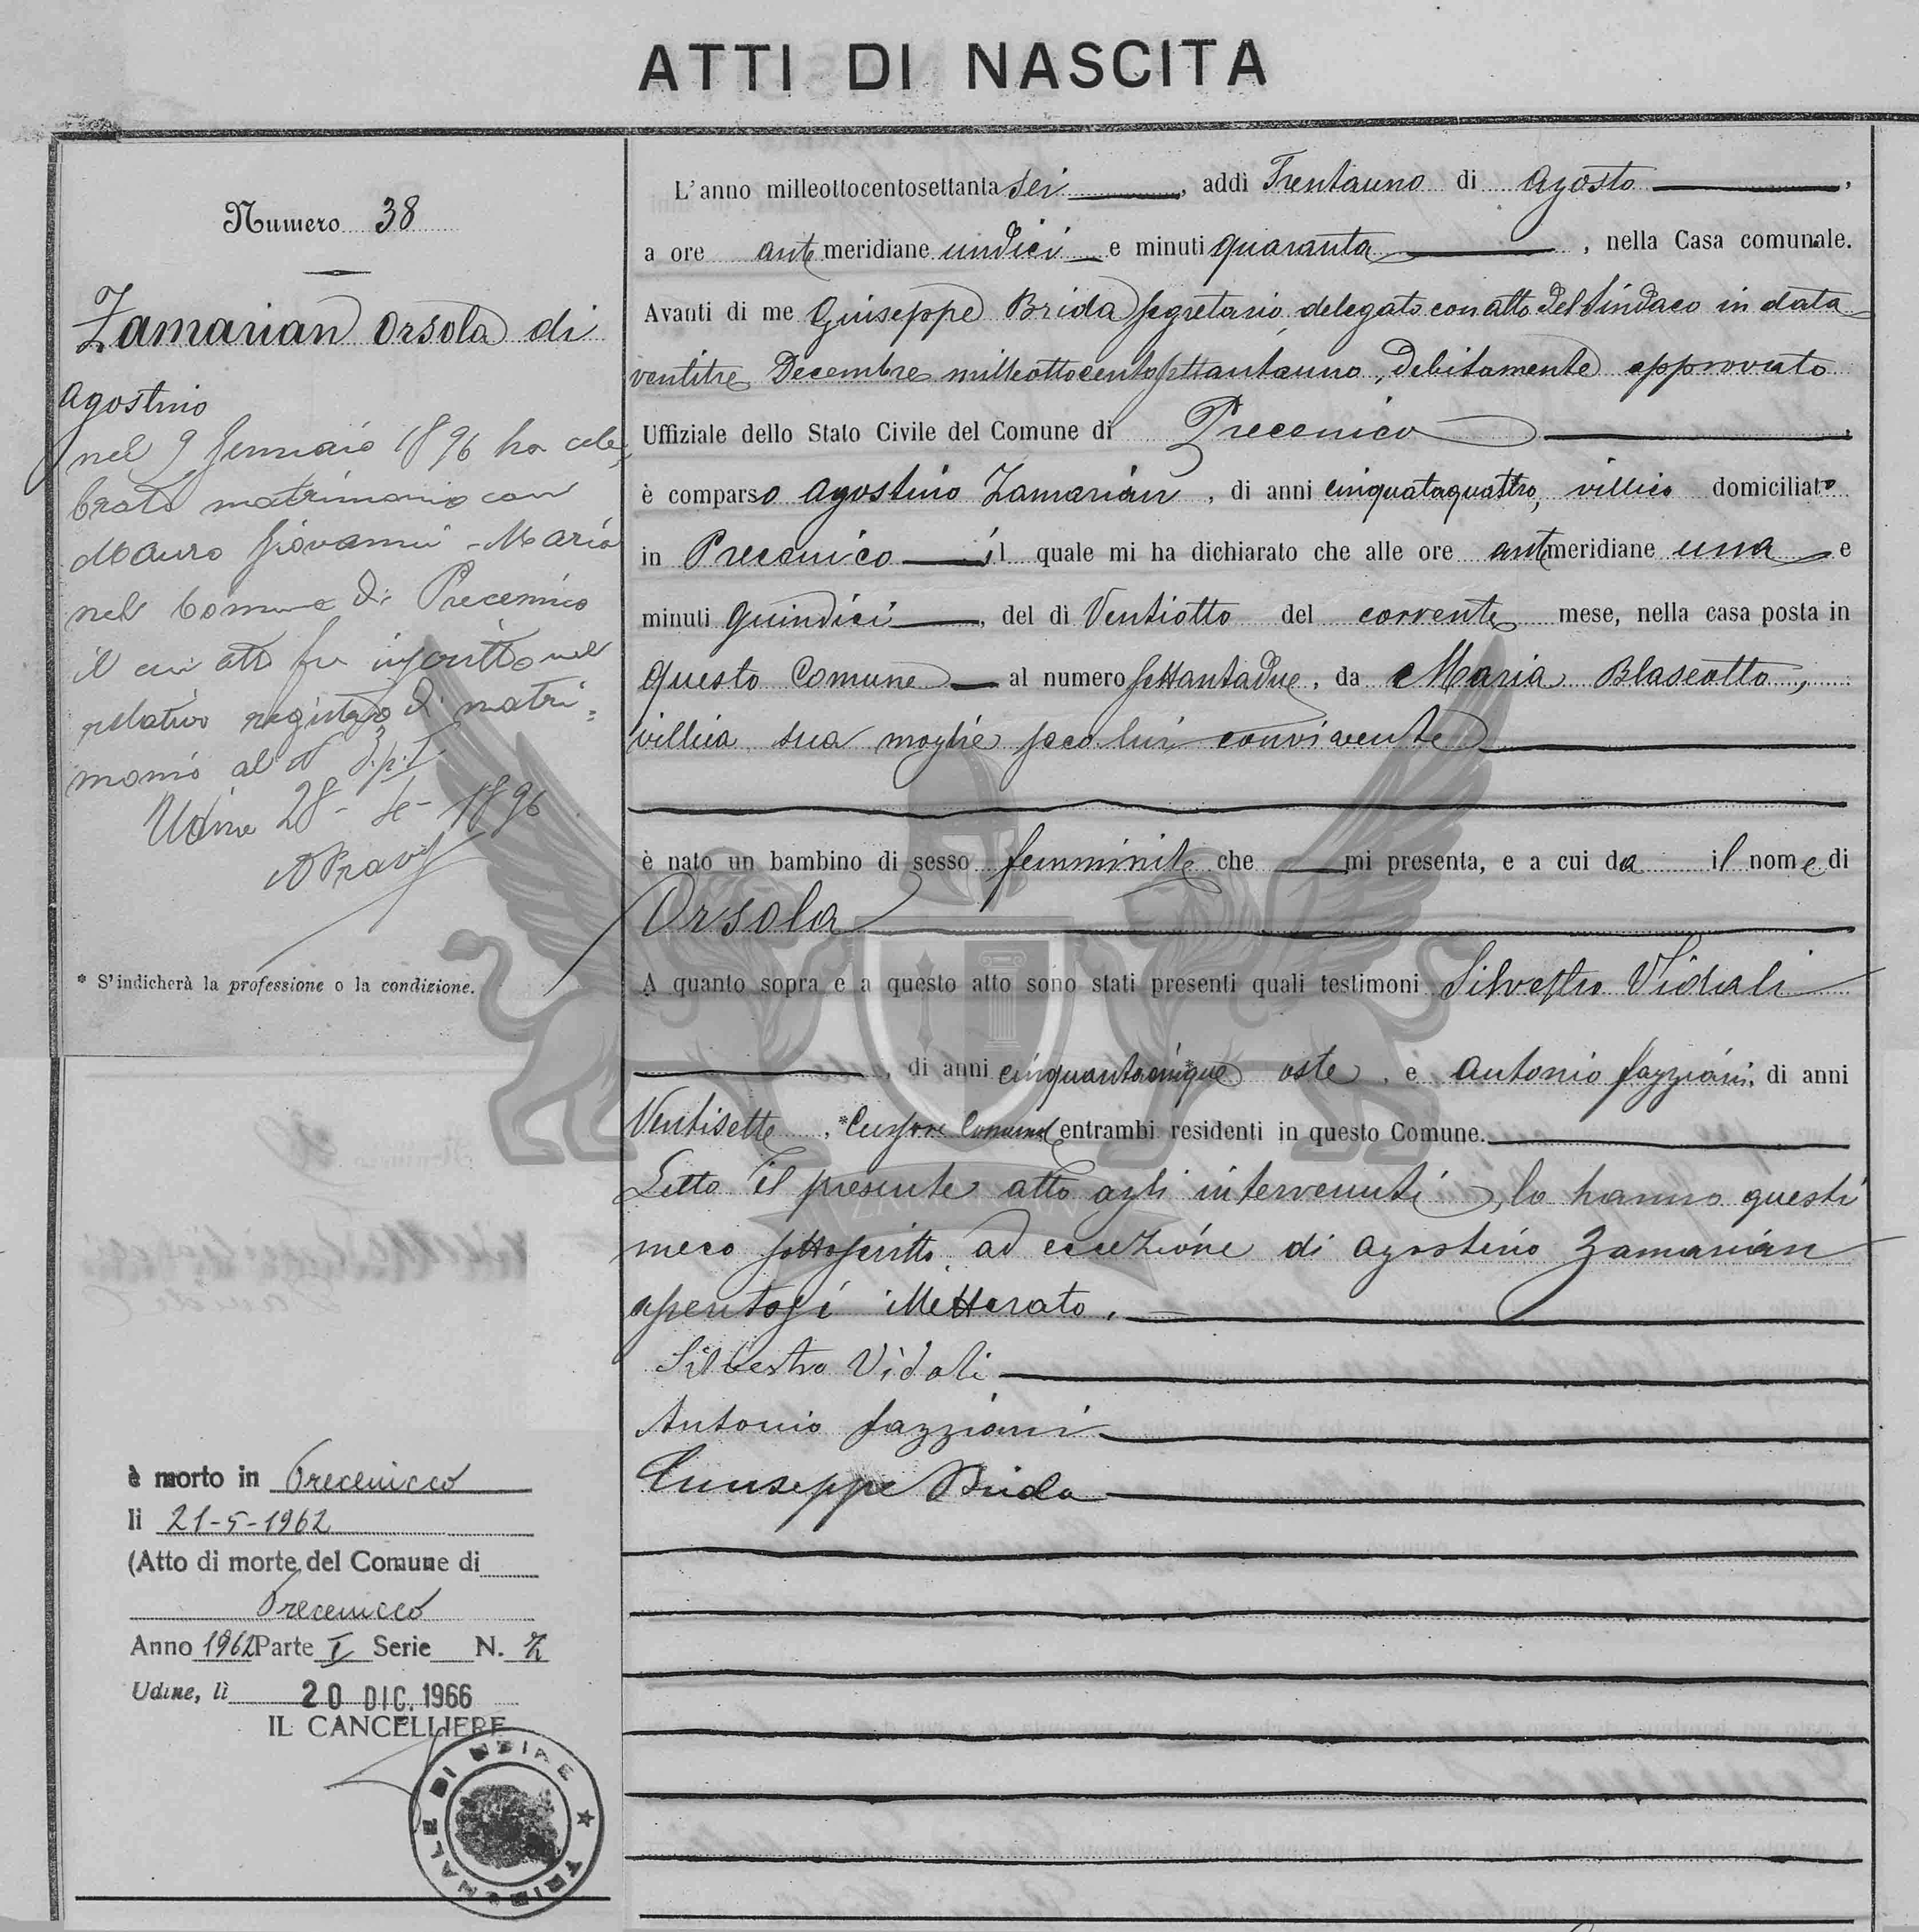 ATTI DI NASCITA
Numero 38
Zamarian Orsola di
Agostino
nel 9 Gennaio 1896 ha cele
brato matrimonio con
Mauro Giovanni - Maria
nel Comune di Precenico
il cui atto fu inscritto nel
relativo registro di matri=
monio al N 3. p. I
Udine 28 - 4 - 1896
* S'indicherà la professione o la condizione.
è morto in Precenicco
li 21-5-1962
(Atto di morte del Comune di
Precenicco
Anno 1962 Parte I Serie N.
Udine, lì 20 DIC. 1966
IL CANCELLIERE
TRIBUNALE DI UDINE
L'anno milleottocentosettantasei, addì Trentauno di Agosto,
a ore antemeridiane undici e minuti quaranta, nella Casa comunale.
Avanti di me Giuseppe Brida segretario, delegato con atto del Sindaco in data
ventitre Decembre milleottocentosettantauno, debitamente approvato
Uffiziale dello Stato Civile del Comune di Precenico
è comparso Agostino Zamarian, di anni cinquataquattro, villico domiciliato
in Precenico il quale mi ha dichiarato che alle ore antemeridiane una e
minuti quindici, del dì Ventiotto del corrente mese, nella casa posta in
questo Comune al numero settantadue, da Maria Blaseotto,
villica sua moglie seco lui convivente
è nato un bambino di sesso femminile che mi presenta, e a cui da il nome di
Orsola
A quanto sopra e a questo atto sono stati presenti quali testimoni Silvestro Vidali
, di anni cinquantacinque oste, e Antonio Fazzioni, di anni
Ventisette, *Cursore Comunal entrambi residenti in questo Comune.
Letto il presente atto agli intervenuti, lo hanno questi
meco sottoscritto, ad eccezione di Agostino Zamarian
perchè illetterato.
Silvestro Vidali
Antonio Fazzioni
Giuseppe Brida